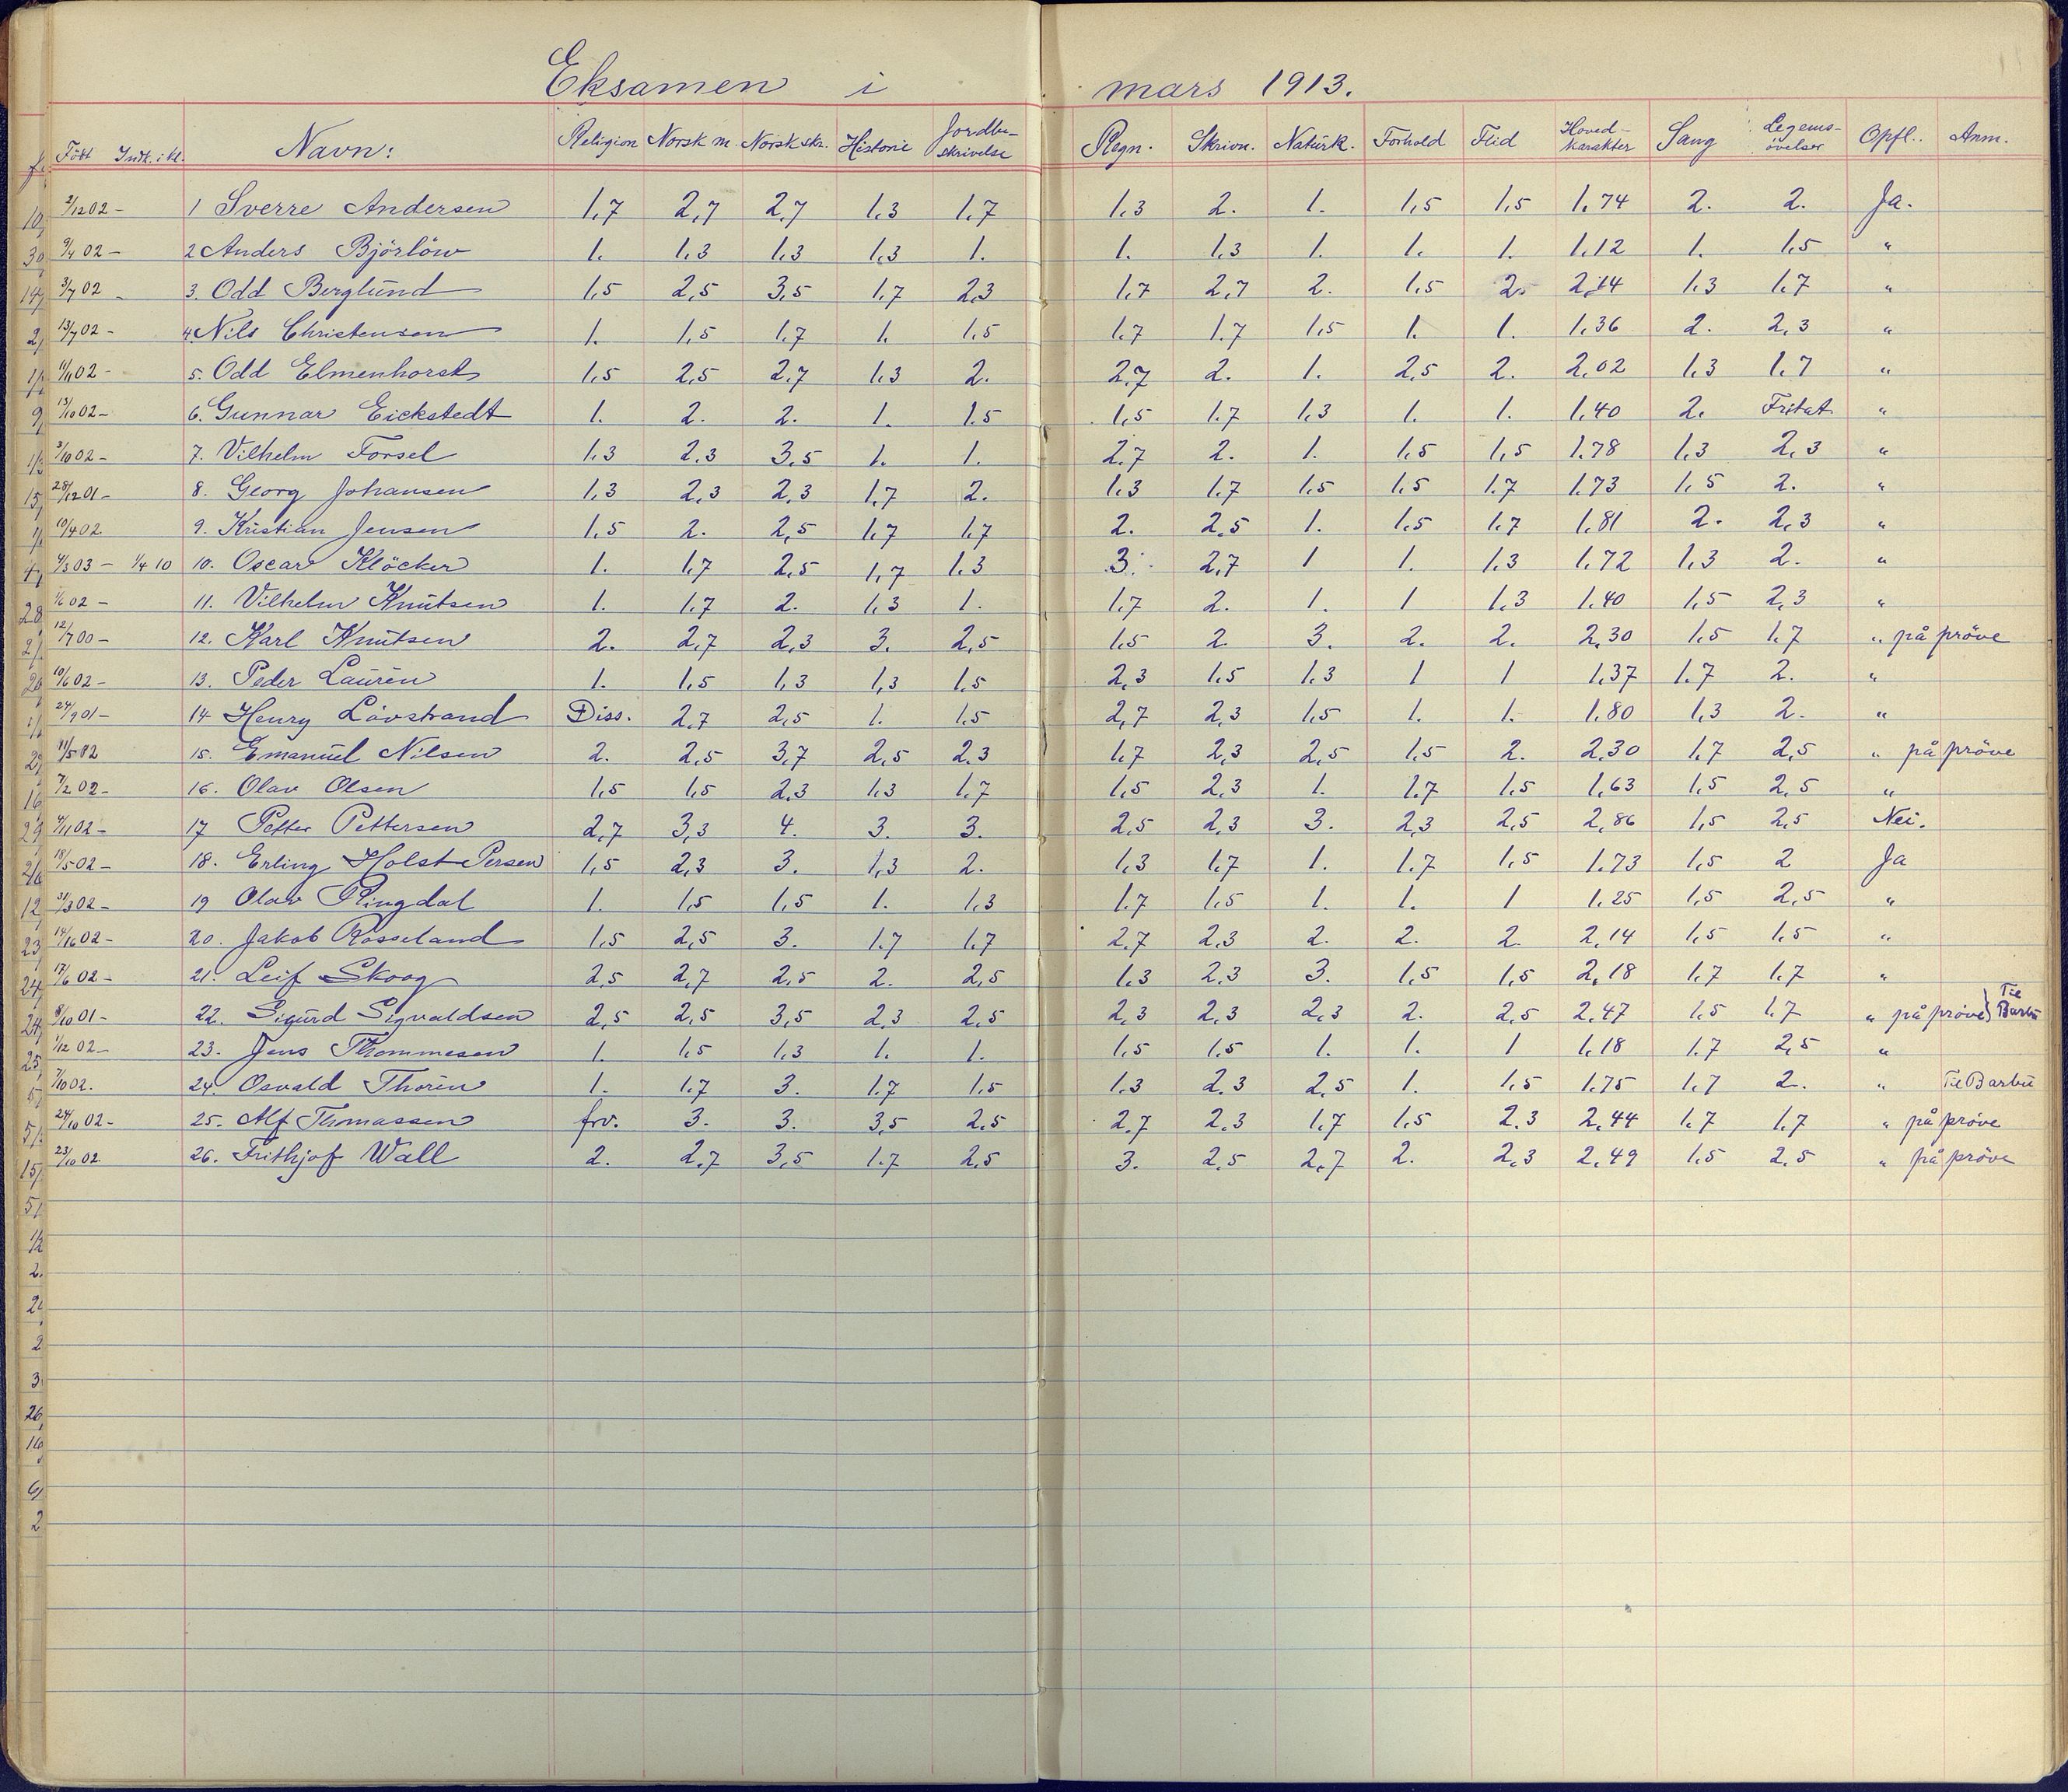 Eksamen i mars 1913.
Född Indk. i kl. Navn: Religion Norsk m. Norsk skr. Historie Jordbe-skrivelse Regn. Skrivn. Naturk. Forhold Flid Hoved-karakter Sang Legems-övelser Opfl. Anm.
2/12 02 - 1 Sverre Andersen 1,7 2,7 2,7 1,3 1,7 1,3 2. 1. 1,5 1,5 1,74 2. 2. Ja.
9/4 02 - 2 Anders Björlöw 1. 1,3 1,3 1,3 1. 1. 1,3 1. 1. 1. 1,12 1. 1,5 "
3/7 02 - 3. Odd Berglund 1,5 2,5 3,5 1,7 2,3 1,7 2,7 2. 1,5 2. 2,14 1,3 1,7 "
13/7 02 - 4. Nils Christensen 1. 1,5 1,7 1. 1,5 1,7 1,7 1,5 1. 1. 1,36 2. 2,3 "
11/11 02 - 5. Odd Elmenhorst 1,5 2,5 2,7 1,3 2. 2,7 2. 1. 2,5 2. 2,02 1,3 1,7 "
13/10 02 - 6. Gunnar Eickstedt 1. 2. 2. 1. 1.5 1,5 1.7 1,3 1. 1. 1,40 2. Fritat "
3/10 02 - 7. Vilhelm Forsel 1,3 2,3 3,5 1. 1. 2,7 2. 1. 1,5 1,5 1.78 1,3 2,3 "
28/12 01 - 8. Georg Johansen 1,3 2,3 2,3 1,7 2. 1.3 1.7 1,5 1,5 1.7 1.73 1,5 2. "
10/4 02 9. Kristian Jensen 1,5 2. 2,5 1,7 1,7 2. 2,5 1. 1,5 1,7 1,81 2. 2,3 "
4/3 03 - 1/4 10 10. Oscar Klöcker 1. 1,7 2,5 1,7 1,3 3. 2,7 1 1. 1,3 1,72 1,3 2. "
1/6 02 - 11. Vilhelm Knutsen 1. 1,7 2. 1,3 1. 1,7 2. 1. 1 1,3 1.40 1,5 2,3 "
12/7 00 - 12. Karl Knutsen 2. 2,7 2,3 3. 2,5 1,5 2. 3. 2. 2. 2,30 1,5 1,7 " på pröve
10/6 02 - 13. Peder Laurén 1. 1,5 1,3 1,3 1,5 2,3 1,5 1,3 1 1 1,37 1.7 2. "
24/9 01 - 14 Henry Lövstrand Diss. 2,7 2,5 1. 1,5 2,7 2,3 1,5 1. 1. 1.80 1,3 2. "
11/5 02 15. Emanuel Nilsen 2. 2,5 3,7 2,5 2.3 1,7 2,3 2,5 1,5 2. 2,30 1.7 2,5 " på pröve
7/2 02 - 16. Olav Olsen 1,5 1,5 2,3 1,3 1,7 1,5 2,3 1. 1.7 1,5 1,63 1,5 2,5 "
4/11 02 - 17 Petter Pettersen 2,7 3,3 4. 3. 3. 2,5 2,3 3. 2,3 2,5 2,86 1,5 2,5 Nei.
18/5 02 - 18. Erling Holst Persen 1,5 2,3 3. 1,3 2. 1,3 1,7 1. 1.7 1,5 1.73 1,5 2 Ja
31/3 02 - 19 Olav Ringdal 1. 1,5 1,5 1. 1,3 1.7 1,5 1. 1. 1 1.25 1,5 2,5 "
02 - 20. Jakob Rosseland 1,5 2,5 3. 1.7 1,7 2.7 2.3 2. 2. 2. 2,14 1,5 1,5 "
17/6 02 - 21. Leif Skoog 2,5 2,7 2,5 2. 2,5 1.3 2.3 3. 1,5 1,5 2,18 1,7 1.7 "
8/10 01 - 22. Sigurd Sigvaldsen 2,5 2,5 3,5 2,3 2,5 2,3 2,3 2,3 2. 2,5 2,47 1,5 1.7 " på pröve } Til Barbu
1/12 02 - 23. Jens Thommesen 1. 1,5 1,3 1. 1. 1,5 1,5 1. 1. 1 1,18 1.7 2,5 "
7/10 02. 24. Osvald Thorén 1. 1.7 3. 1.7 1,5 1.3 2.3 2,5 1. 1,5 1.75 1,7 2. " Til Barbu
24/10 02 - 25. Alf Thomassen frv. 3. 3. 3,5 2,5 2,7 2,3 1,7 1,5 2.3 2,44 1.7 1,7 " på pröve
23/10 02 26. Frithjof Wall 2. 2,7 3,5 1.7 2,5 3. 2,5 2,7 2. 2,3 2,49 1,5 2,5 " på pröve